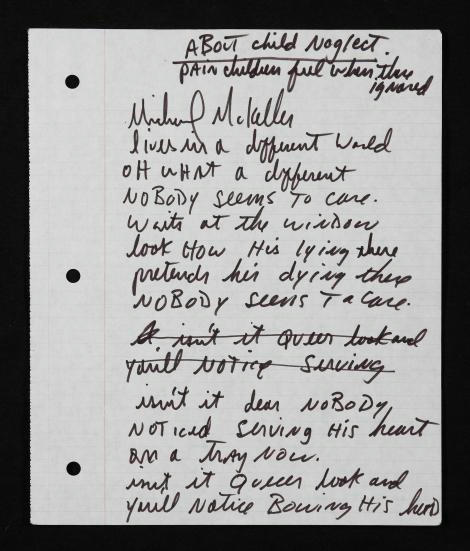 ABOUT child Neglect.
PAIN children feel when there
ignored
Michael McKeller
lives in a different World
OH WHAT a different
NOBODY seems To care.
Waits at the WINDOW
look How His lying there
pretends his dying there
NOBODY seems To Care.
isn't it Queer look and
you'll Notice Serving
isn't it dear NOBODY
NOTiced Serving His heart
on a Tray Now.
isn't it Queer look and
you'll Notice Bowing His head